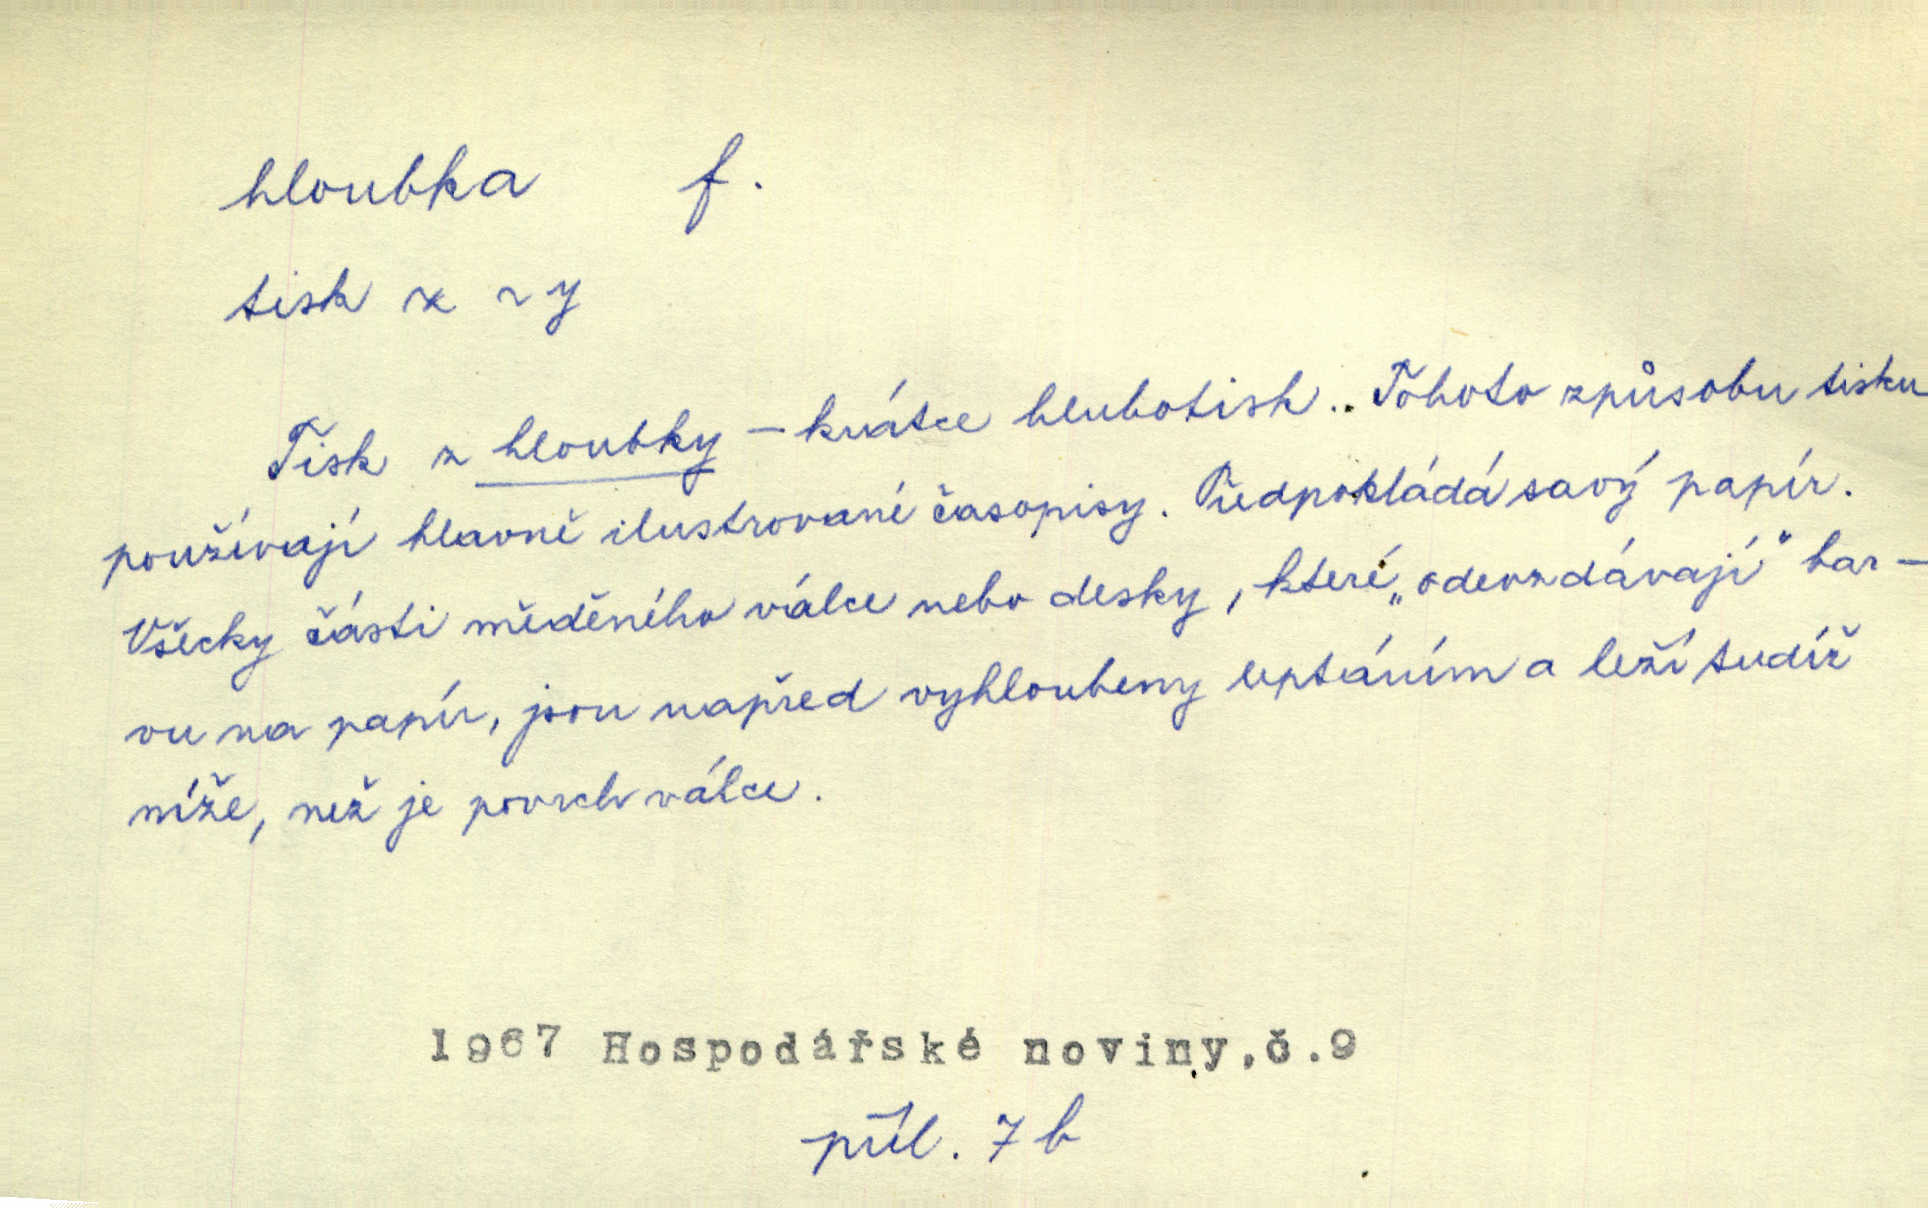 hloubka f.
tisk z ~y
Tisk z hloubky – krátce hlubotisk.. Tohoto způsobu tisku
používají hlavně ilustrované časopisy. Předpokládá savý papír.
Všecky části měděného válce nebo desky, které „odevzdávají“ bar-
vu na papír, jsou napřed vyhloubeny leptáním a leží tudíž
níže, než je povrch válce.
1967 Hospodářské noviny,č.9
příl. 7b